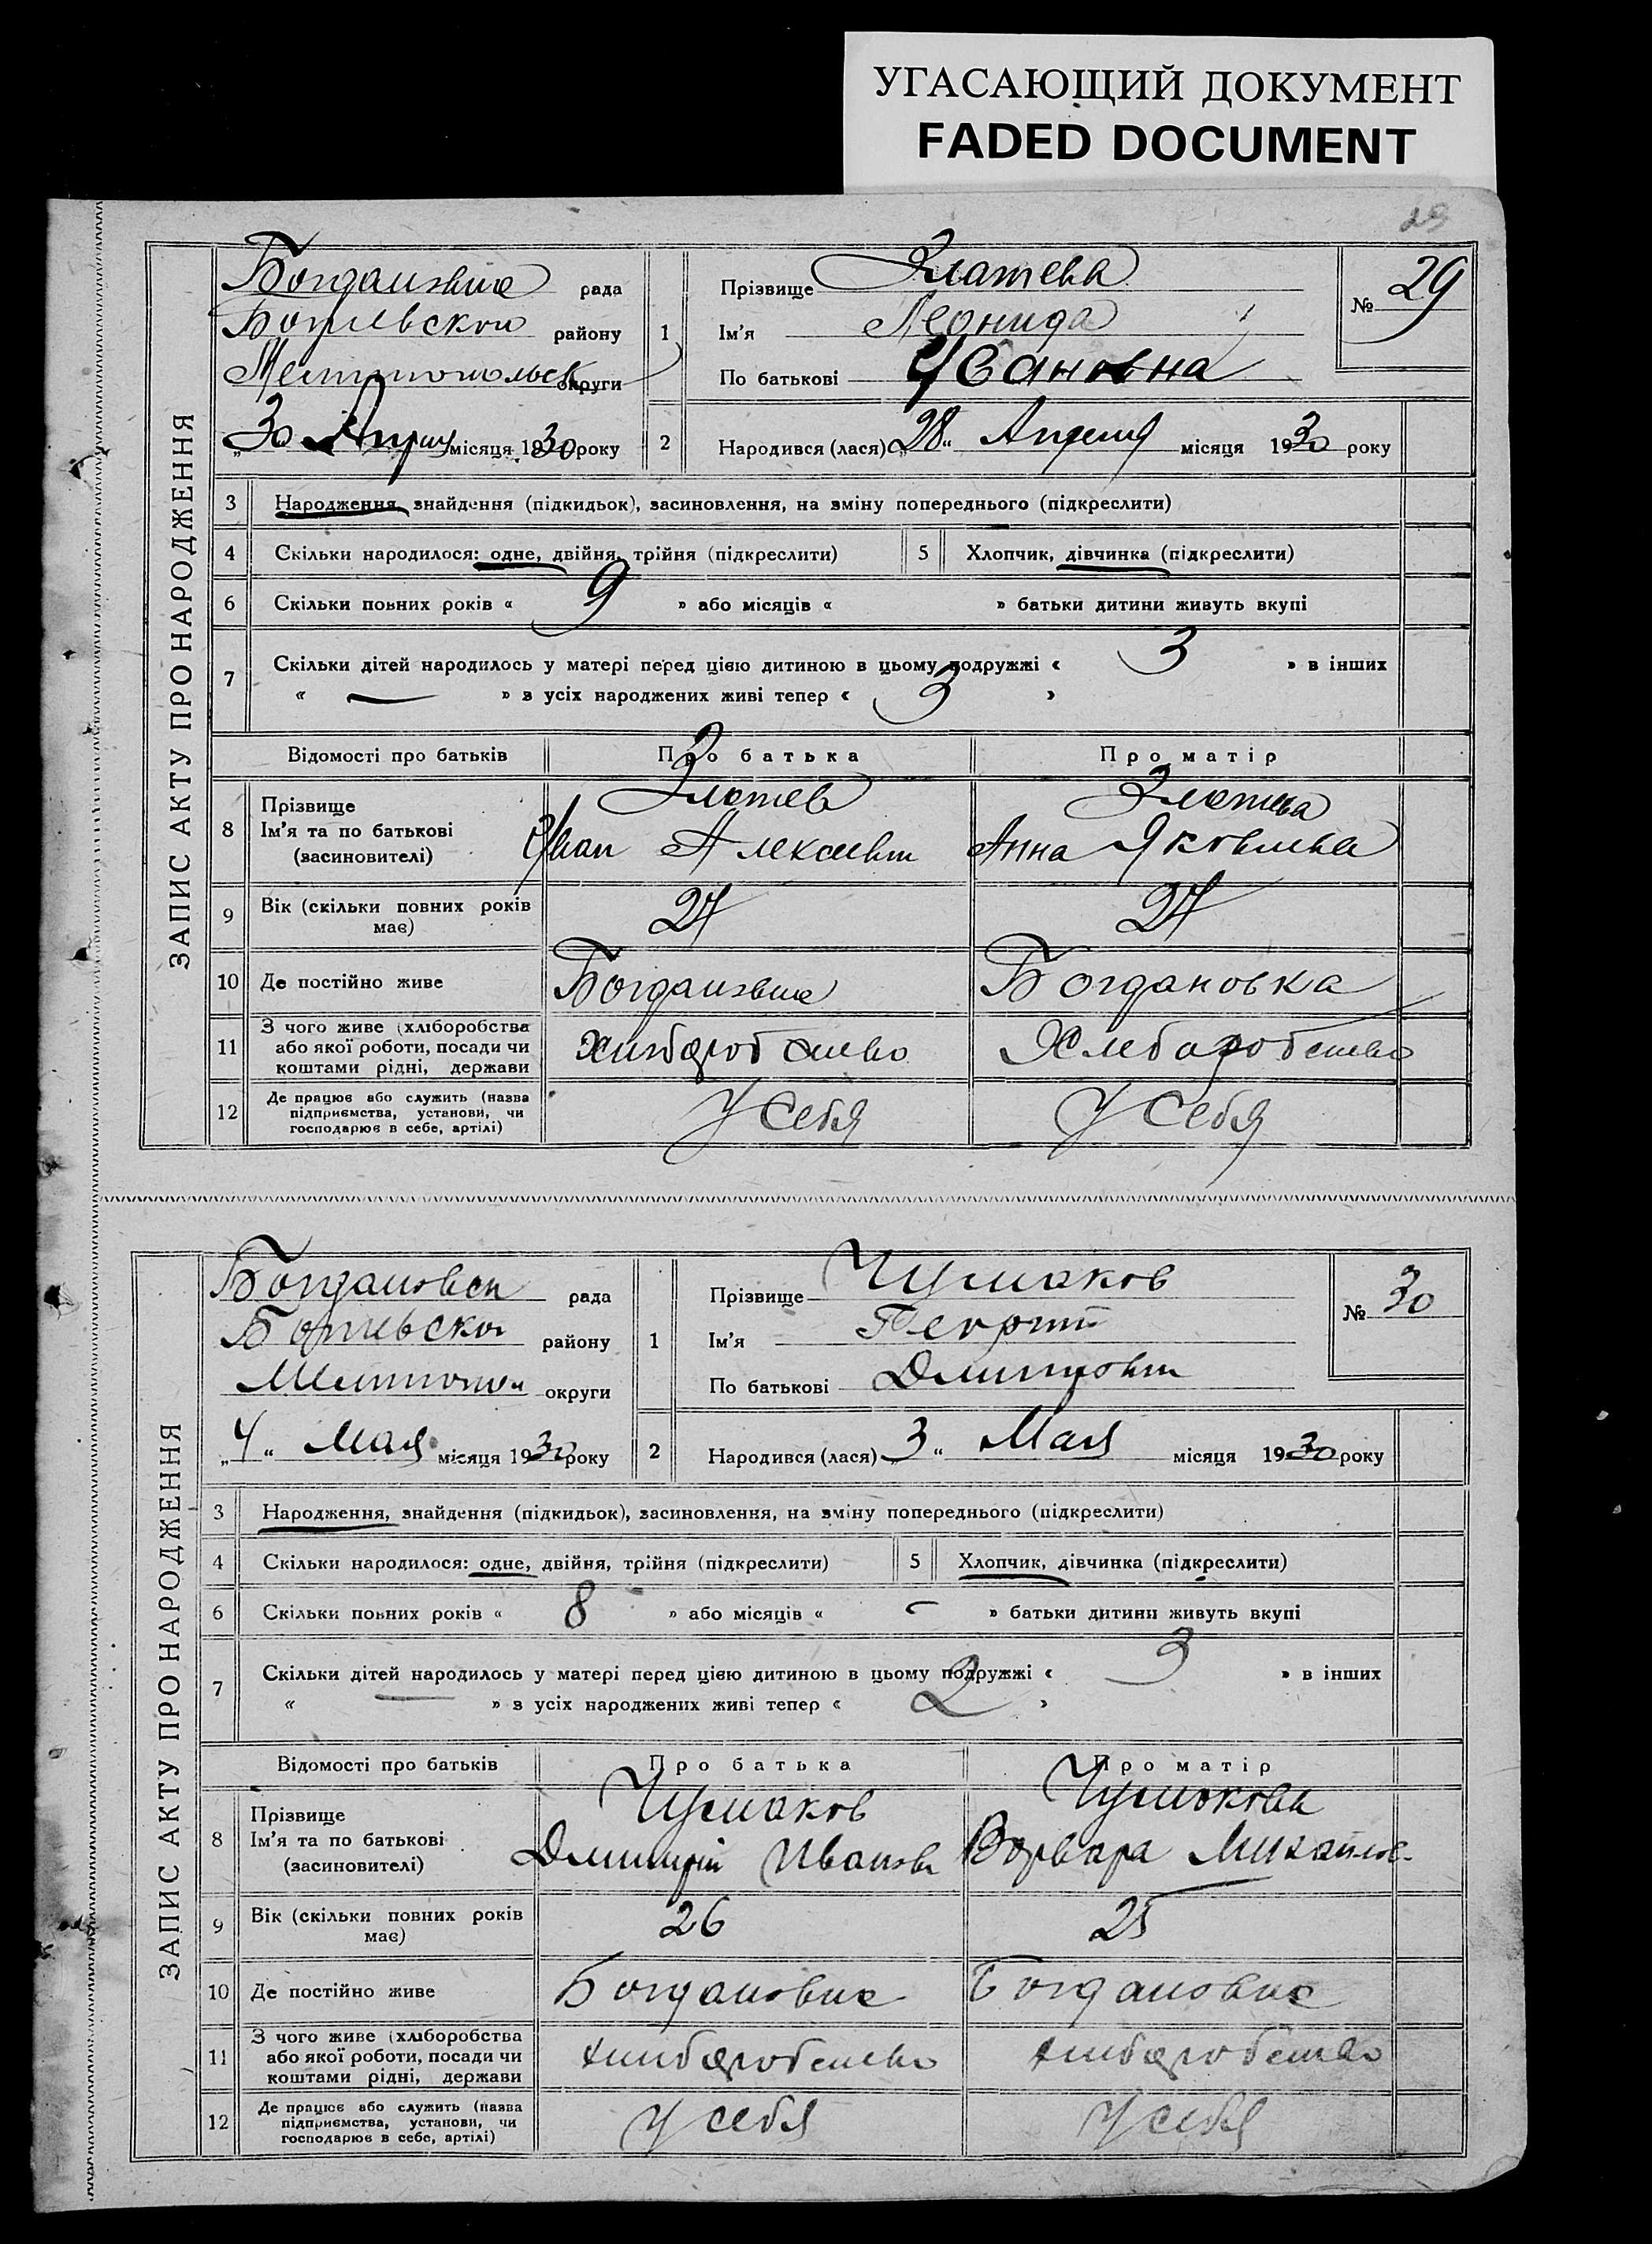 УГАСАЮЩИЙ ДОКУМЕНТ
FADED DOCUMENT
29
ЗАПИС АКТУ ПРО НАРОДЖЕННЯ
Богдановка рада
Ботиевского району
Мелитопольск округи
„30 Апреля місяця 1930 року
1
Прізвище Златева
Ім'я Леонида
По батькові Ивановна
№ 29
2 Народився (лася) „28“ Апреля місяця 1930 року
3 Народження, знайдення (підкидьок), засиновлення, на зміну попереднього (підкреслити)
4 Скільки народилося: одне, двійня, трійня (підкреслити) 5 Хлопчик, дівчинка (підкреслити)
6 Скільки повних років « 9 » або місяців « » батьки дитини живуть вкупі
7 Скільки дітей народилось у матері перед цією дитиною в цьому подружжі « 3 » в інших
« — » з усіх народжених живі тепер « 3 »
Відомості про батьків Про батька Про матір
8 Прізвище
Ім'я та по батькові
(засиновителі)
Златев
Иван Алексеевич
Златева
Анна Яковлевна
9 Вік (скільки повних років має) 27 27
10 Де постійно живе Богдановка Богдановка
11 З чого живе (хліборобства
або якої роботи, посади чи
коштами рідні, держави
Хлеборобство Хлеборобство
12 Де працює або служить (назва
підприємства, установи, чи
господарює в себе, артілі)
У себя У себя
ЗАПИС АКТУ ПРО НАРОДЖЕННЯ
Богдановск рада
Ботиевской району
Мелитопол округи
„4“ Мая місяця 1930 року
1
Прізвище Чумаков
Ім'я Георгий
По батькові Дмитрович
№ 30
2 Народився (лася) 3“ Мая місяця 1930 року
3 Народження, знайдення (підкидьок), засиновлення, на зміну попереднього (підкреслити)
4 Скільки народилося: одне, двійня, трійня (підкреслити) 5 Хлопчик, дівчинка (підкреслити)
6 Скільки повних років « 8 » або місяців « – » батьки дитини живуть вкупі
7 Скільки дітей народилось у матері перед цією дитиною в цьому подружжі « 3 » в інших
« — » з усіх народжених живі тепер « 2 »
Відомості про батьків Про батька Про матір
8 Прізвище
Ім'я та по батькові
(засиновителі)
Чумаков
Дмитрий Иванов
Чумакова
Варвара Михайлов.
9 Вік (скільки повних років має) 26 25
10 Де постійно живе Богдановка Богдановка
11 З чого живе (хліборобства
або якої роботи, посади чи
коштами рідні, держави
хлеборобство хлеборобство
12 Де працює або служить (назва
підприємства, установи, чи
господарює в себе, артілі)
У себя У себя